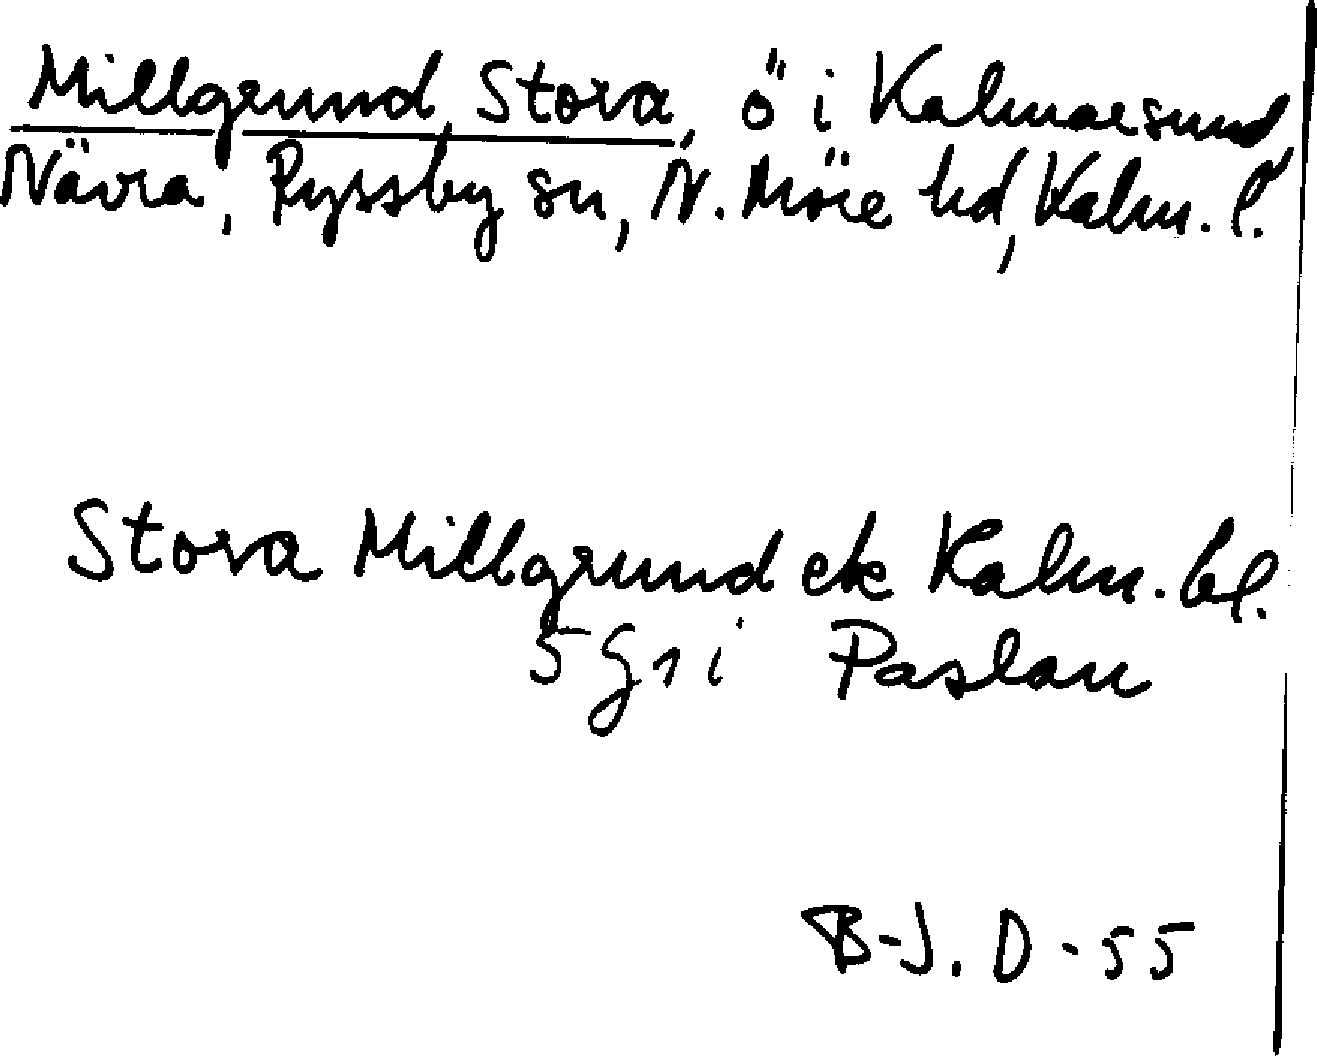 Millgrund, Stora, ö i Kalmarsund
Nävra, Ryssby sn, N. Möre hd, Kalm. l.
Stora Millgrund ek Kalm. bl.
5 g 1 i Paslau
B-J. D-55